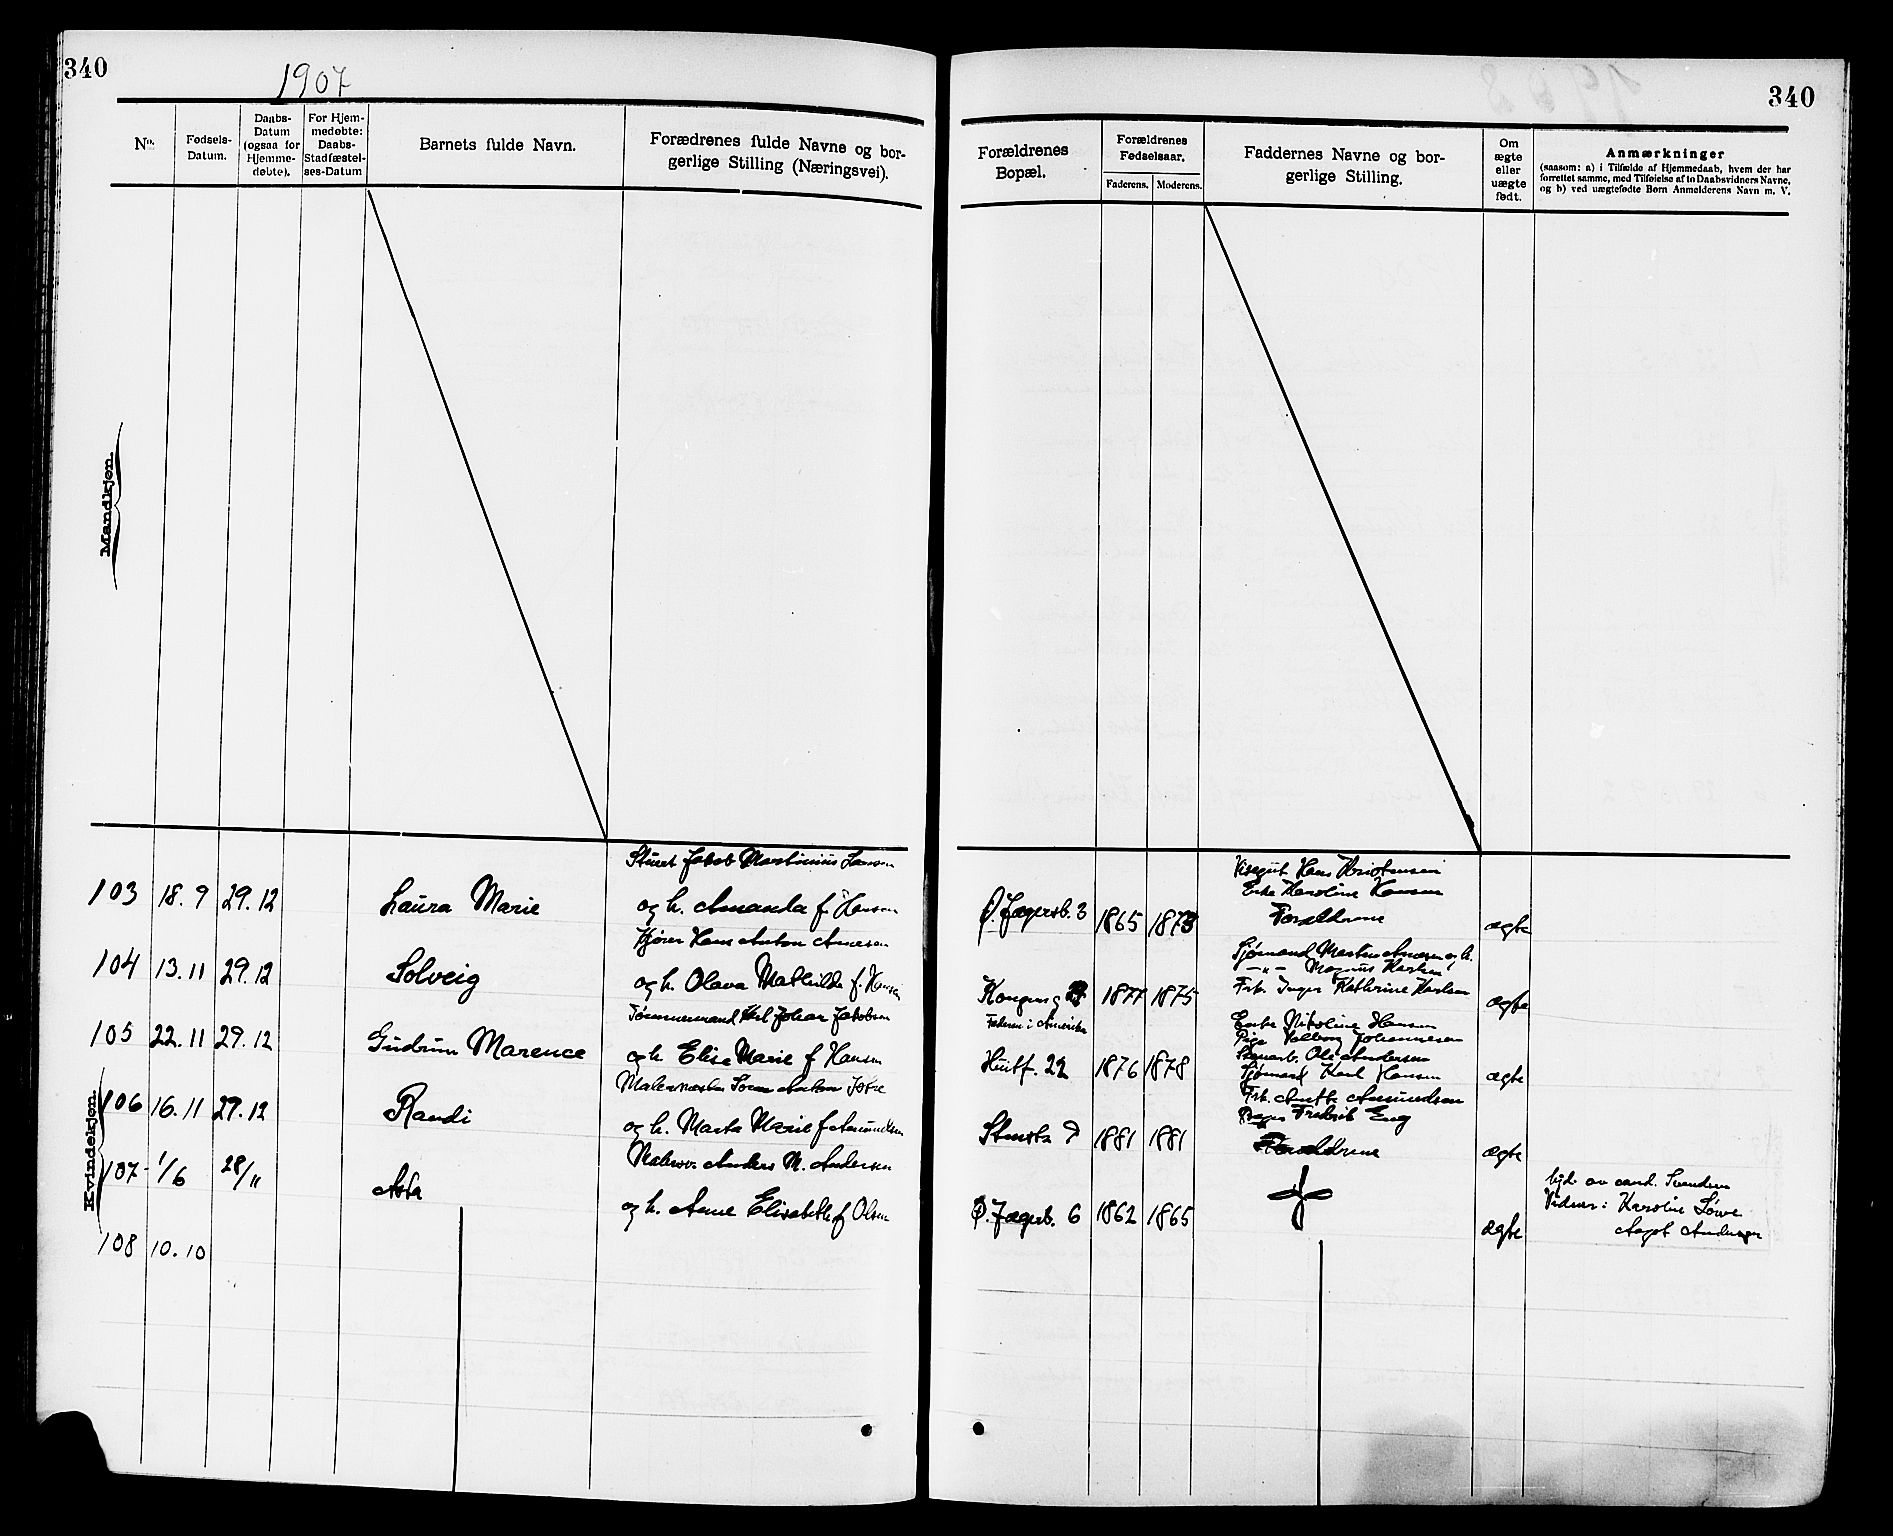 340
1907
No.
Fødsels-
Datum.
Daabs-
Datum
(ogsaa for
Hjemme-
døbte).
For Hjem-
medøbte:
Daabs-
Stadfæstel-
ses-Datum
Barnets fulde Navn.
Forædrenes fulde Navne og bor-
gerlige Stilling (Næringsvei).
Mandkjøn.
Kvindekjøn.
103 18.9 29.12 Laura Marie
Jakob Martinius
og h. Amanda f. Hansen
104 13.11 29.12 Solveig
Hans Anton
og h. Olava Mathilde f. Hansen
105 22.11 29.12 Gudrun Marence
Tømmermand Johan Jakobsen
og h. Elise Marie f Hansen
106 16.11 29.12 Randi
Malermester Anton
og h. Marta Marie f Amundsen
107 1/6 28/11 Asta
Anders M. Andersen
og h. Anne Elisabeth f Olsen
108 10.10
340
Forældrenes
Bopæl.
Forældrenes
Fødselsaar.
Faderens. Moderens.
Faddernes Navne og bor-
gerlige Stilling.
Om
ægte
eller
uægte
født.
Anmærkninger
(saasom: a) i Tilfælde af Hjemmedaab, hvem der har
forrettet samme, med Tilføielse af to Daabsvidners Navne,
og b) ved uægtefødte Børn Anmelderens Navn m. V.
Hans Kristensen
Enke Karoline Hansen
Ø. Jægersb. 3 1865 1873 Forældrene ægte
Sjømand og h.
—„— Magnus Karlsen
1877 1875 Frk. Inger Kathrine Karlsen ægte
Faderen i Amerika
Enke Nikoline Hansen
Pige Valborg Johannesen
Ole Andersen
Huitf. 22 1876 1878 Sjømand Karl Hansen ægte
Frk. Amundsen
Fredrik Eng
1881 1881 Forældrene ægte
Ø. Jægersb. 6 1862 1865 ægte
av cand. Svendsen
Vidner: Karoline Løwe
Aagot Andersen